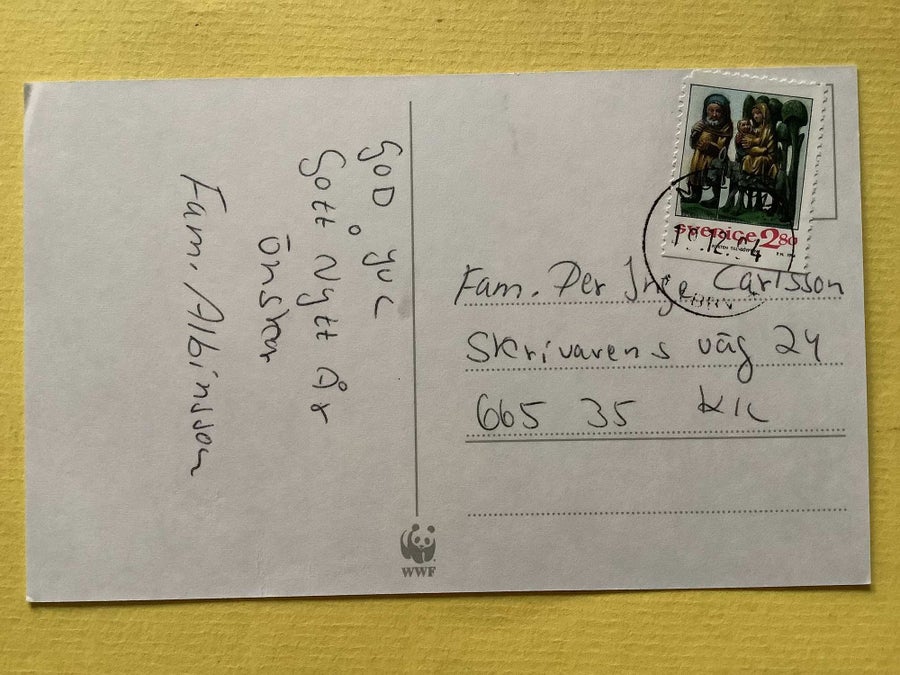 GOD JUL
Gott Nytt År
Önskar
Fam. Albinsson
SVERIGE 280
Fam. Per Inge Carlsson
Skrivarens väg 24
665 35 Kil
WWF